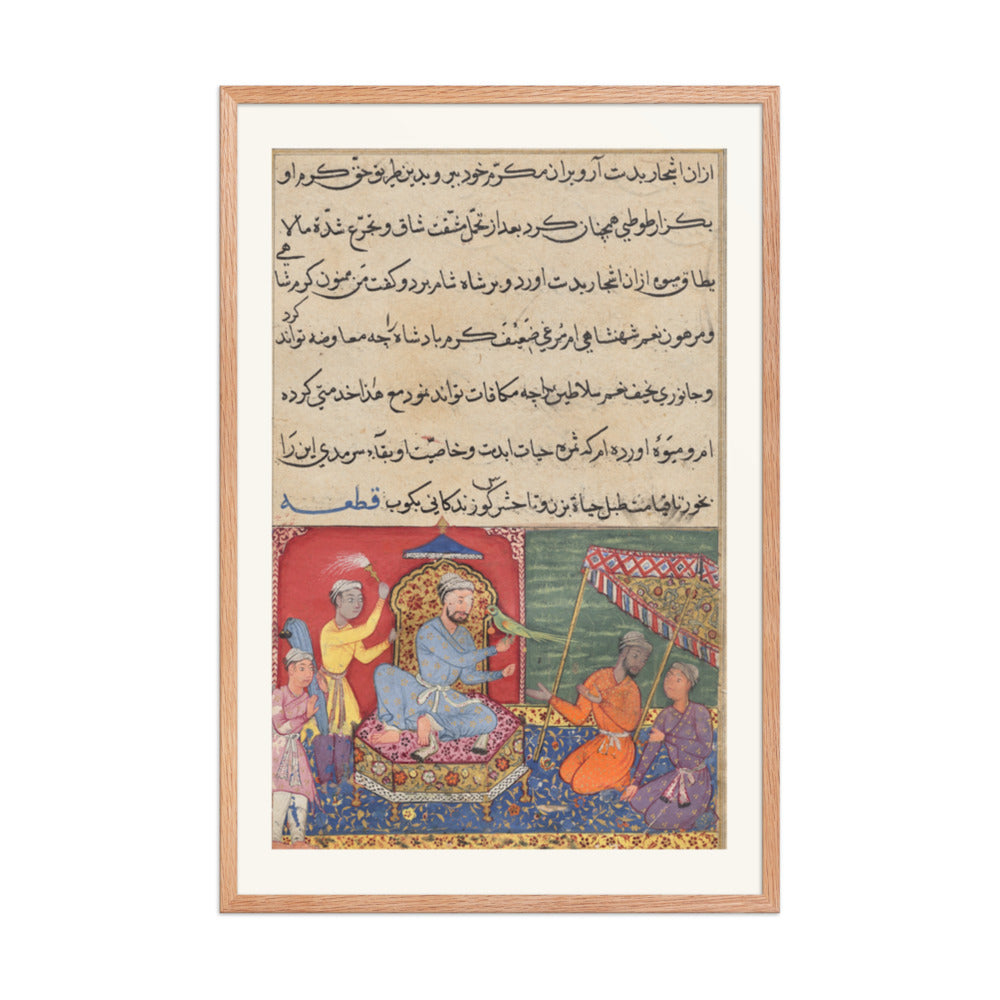 ازان اشجار بدست آر و بران مکرّم خود ببر و بدین طریق حقّ کرم او
بگزار طوطی همچنان کرد بعد از تحمّل مشقّت شاق و تجرّع شدّة مالا
یطاق میوه ازان اشجار بدست اورد و بر شاه شام برد و گفت من ممنون کرم شاهی
و مرهون نعم شهنشاهی ام مرغی ضعیف کرم بادشاه را چه معاوضه تواند کرد
و جانوری نحیف نعم سلاطین را چه مکافات تواند نمود مع هذا خدمتی کرده
ام و میوۀ اورده ام که ثمرۀ حیات ابدست و خاصیّت او بقاء سرمدی این را
بخور تا قیامت طبل حیاة بزن و تا حشر کوس زندکانی بکوب قطعه